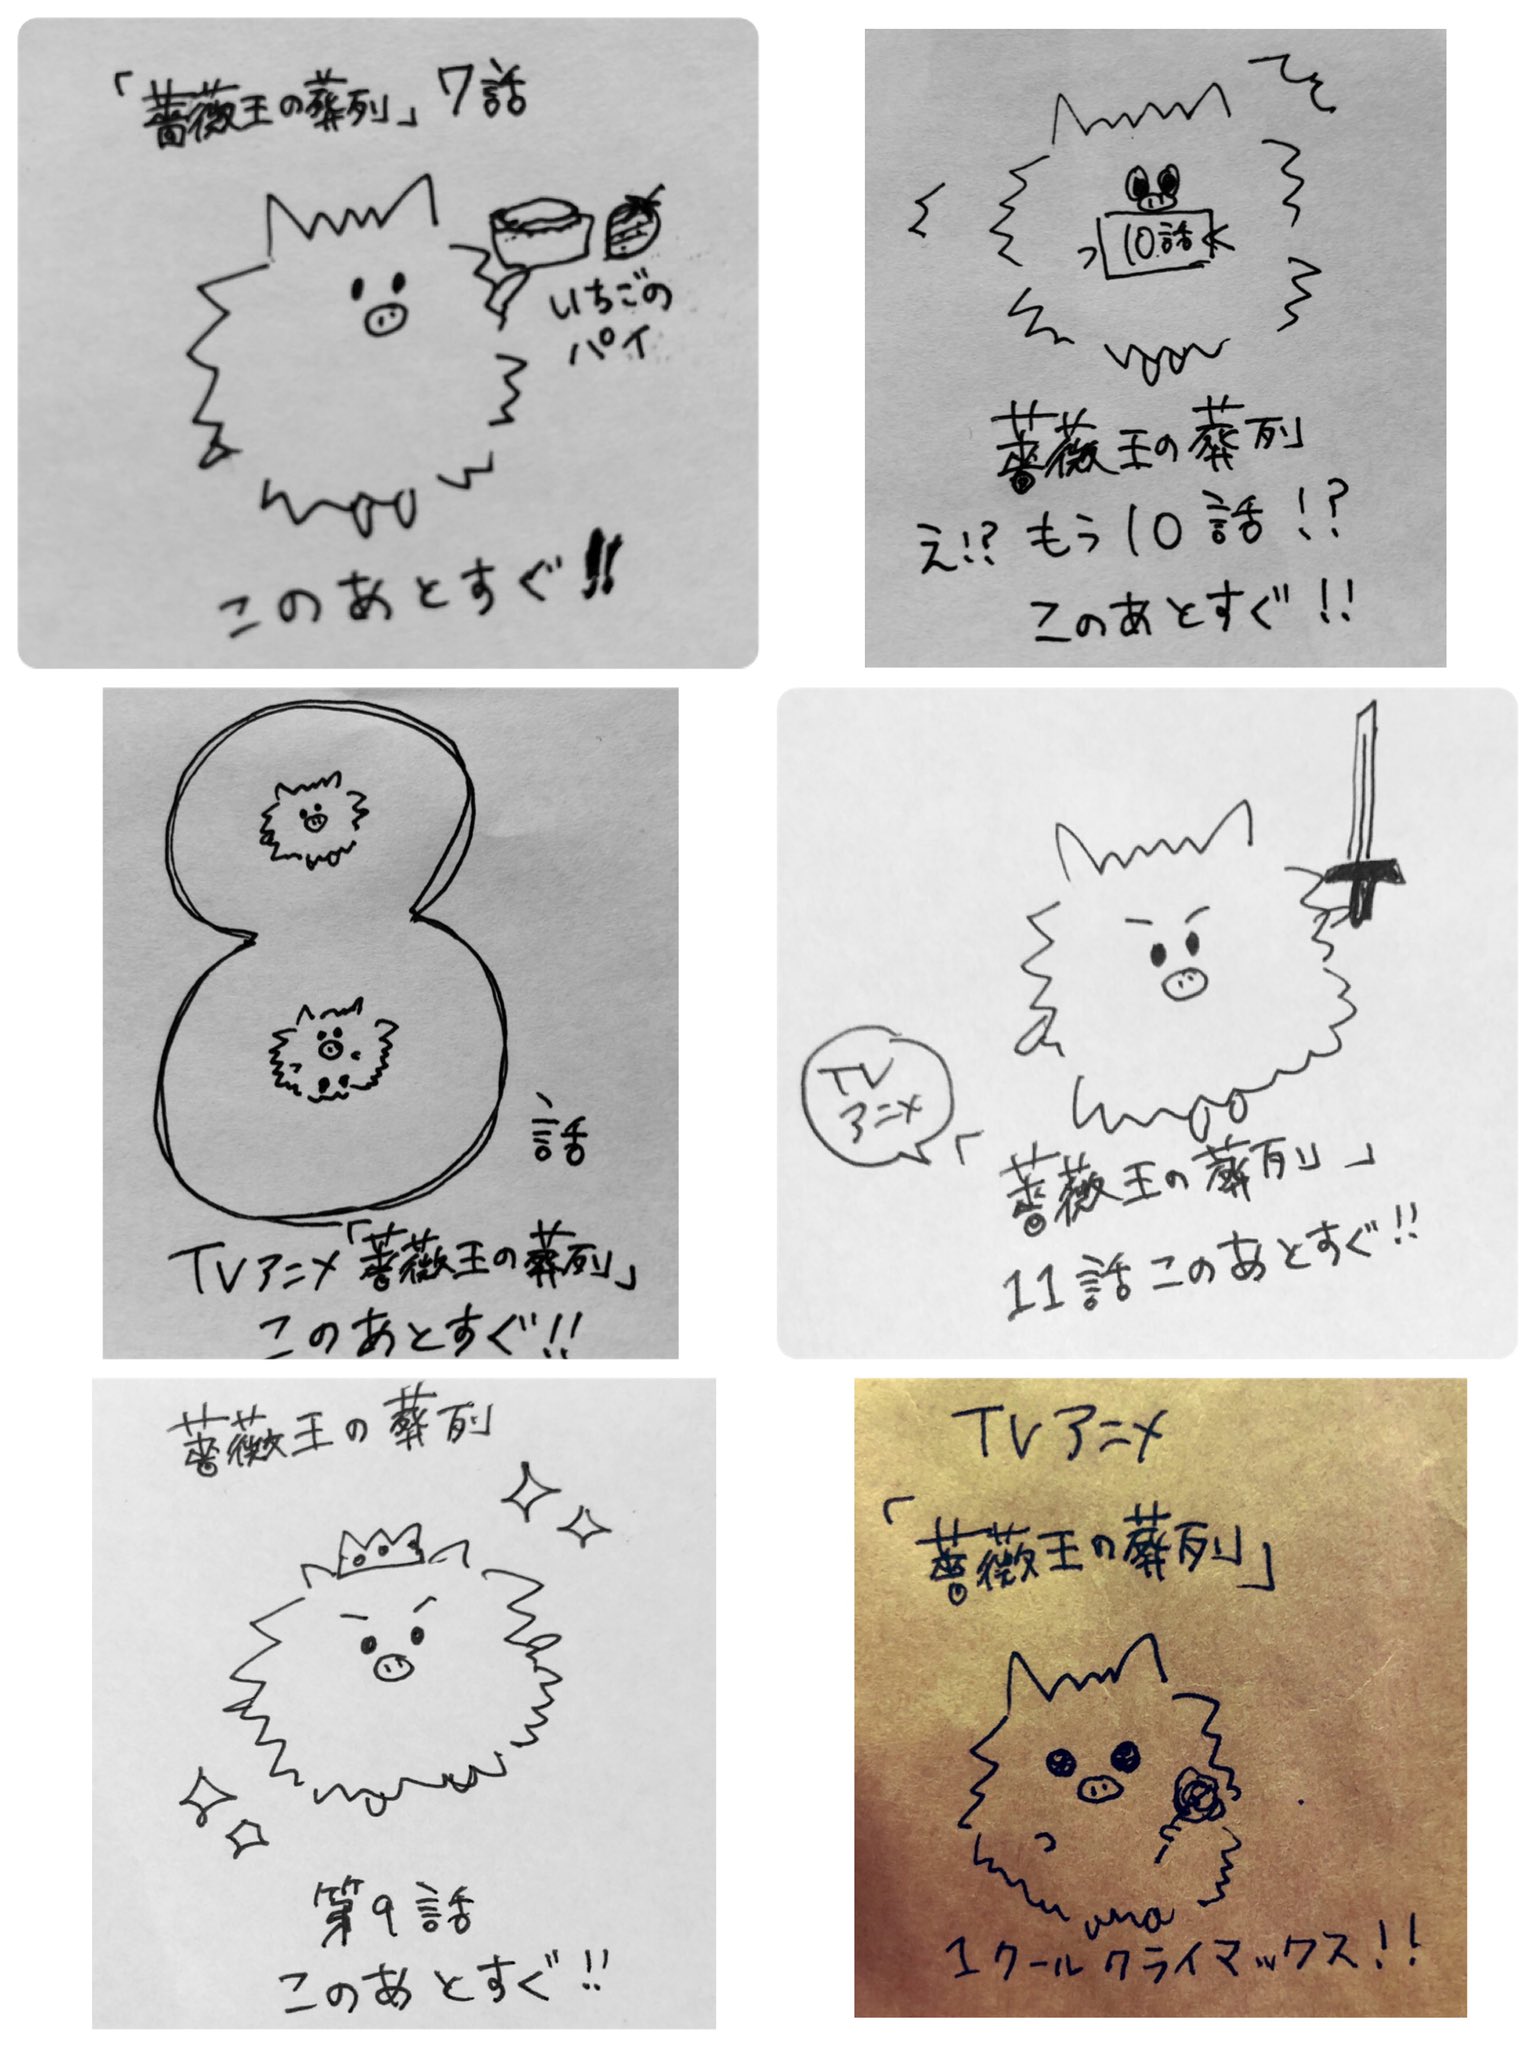 「薔薇王の葬列」7話
いちごの
パイ
このあとすぐ!!
10話
薔薇王の葬列
え!?もう10話!?
このあとすぐ!!
8
話
TVアニメ「薔薇王の葬列」
このあとすぐ!!
TV
アニメ
「薔薇王の葬列」
11話このあとすぐ!!
薔薇王の葬列
第9話
このあとすぐ!!
TVアニメ
「薔薇王の葬列」
1クールクライマックス!!